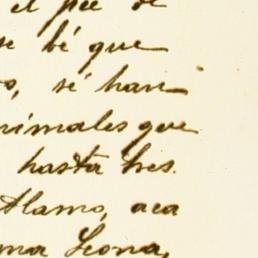 el pié de
se bé que
o, sé han
nimales que
hasta tres.
Alamo, aca
ma Leona,